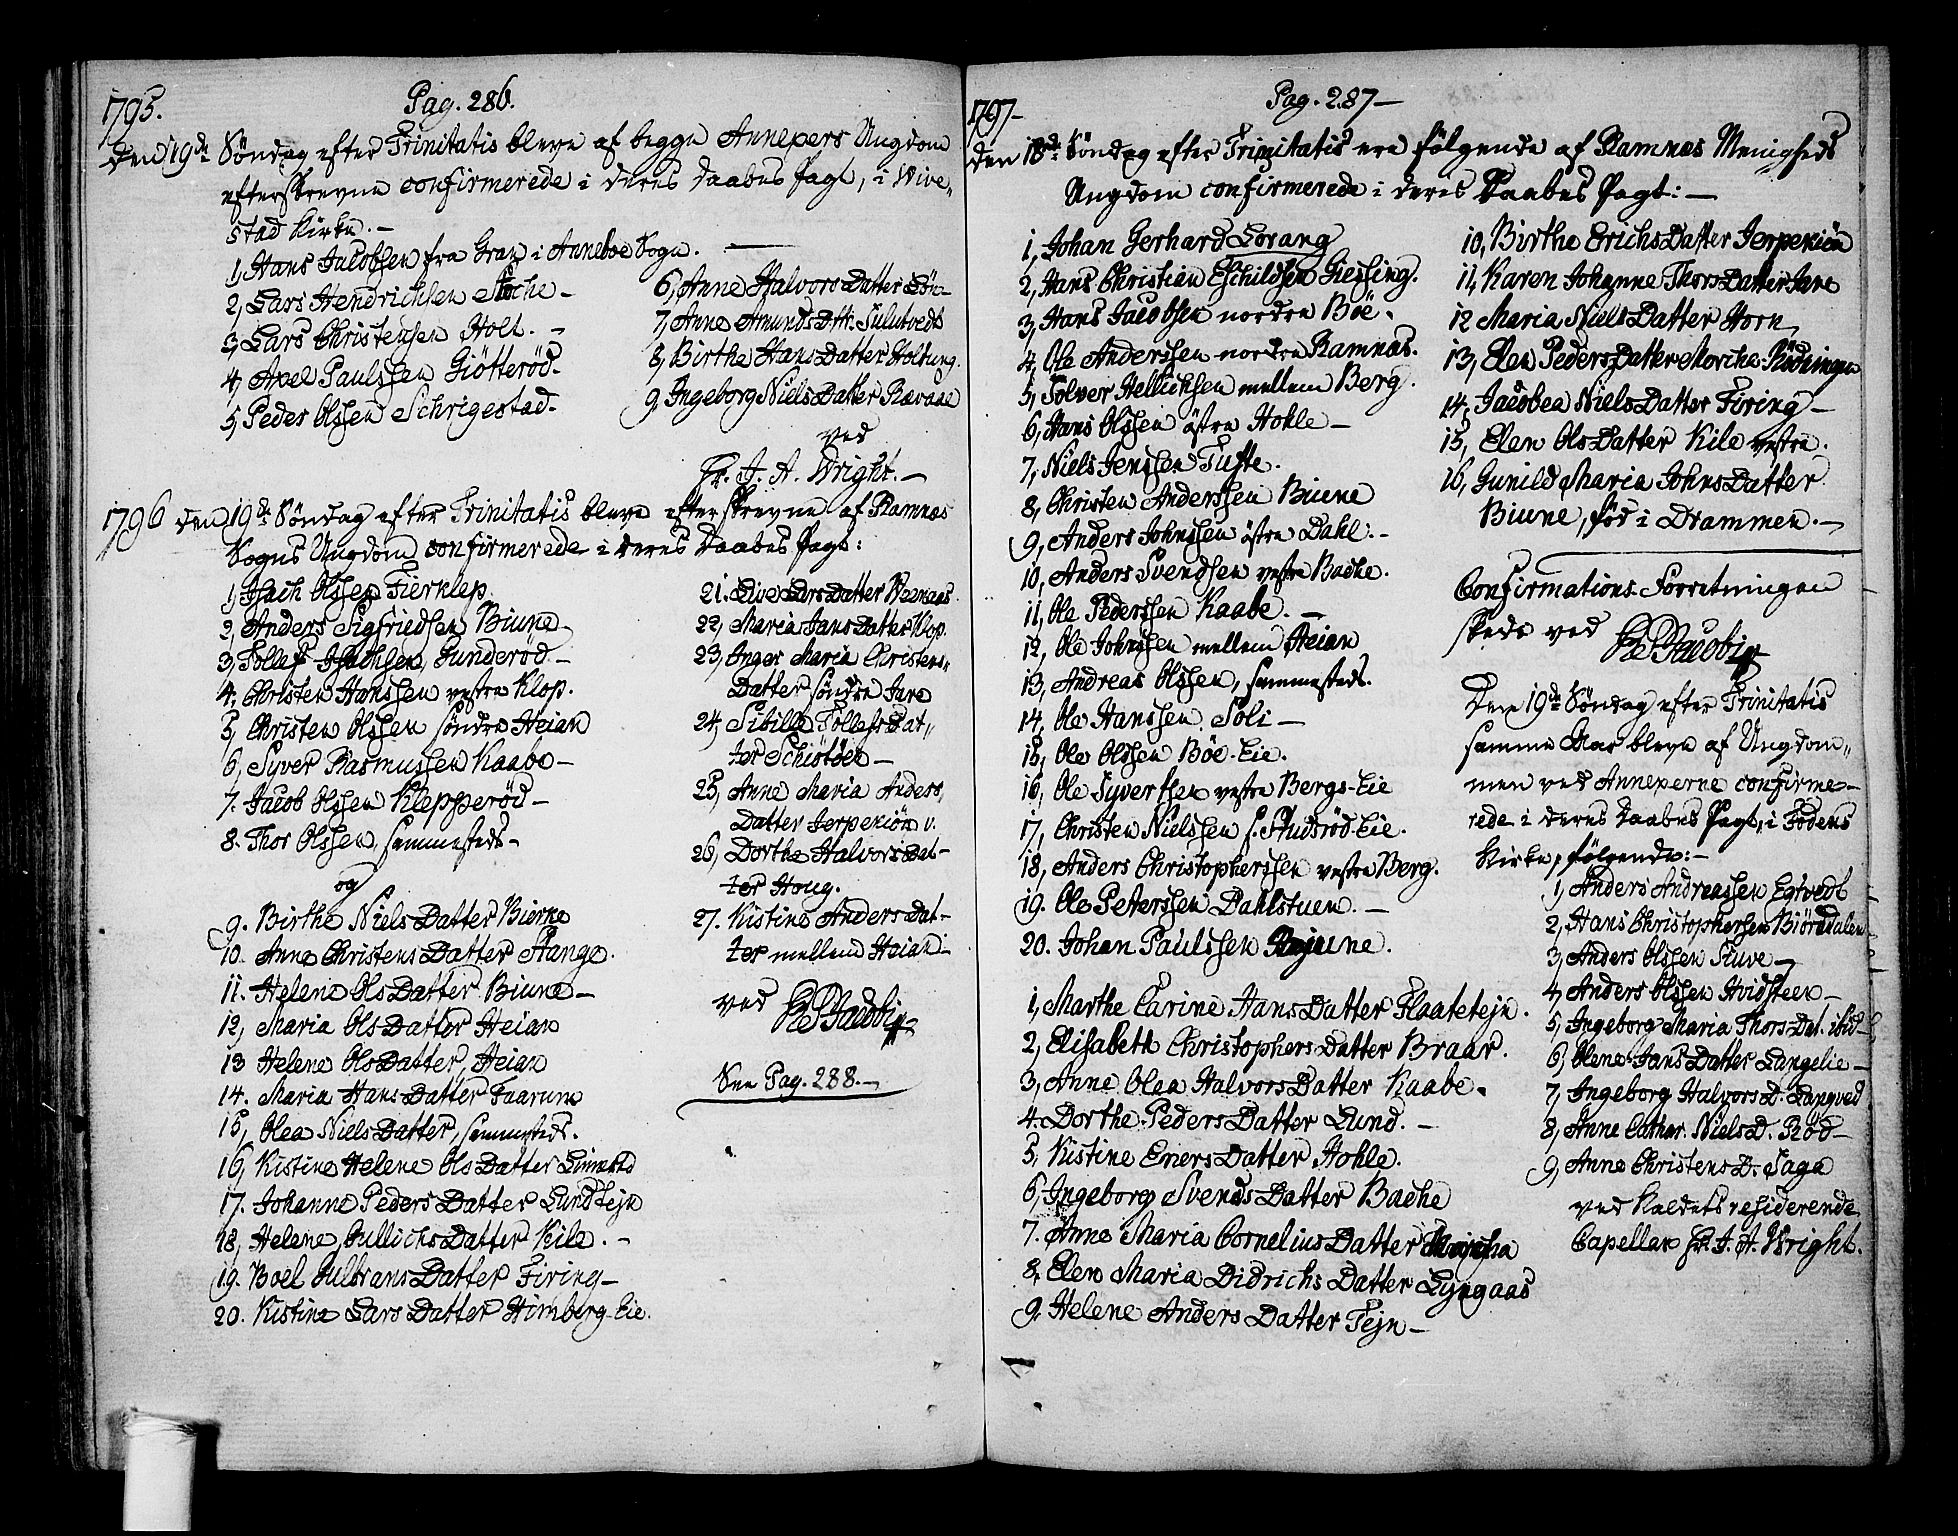 1795.
Pag. 286.
den 19de Søndag efter Trinitatis bleve af begge Annexers Ungdom
efterskrevne confirmerede i deres Daabes Pagt, i Vive-
stad Kirke. -
1, Hans Jacobsen fra Gran i Anneboe Sogn.
2, Lars Hendrichsen
3, Lars Christensen Holt. -
4, Axel Paulssen Giötteröd.
5, Peder Olssen Schrigestad.
6, Anne Halvors Datter Lön-
7, Anne Amunds Dtt. Sulutvedt
8, Birthe Hans Datter Holtung.
9, Ingeborg Niels Datter Rævaae
ved
Hr. J. A. Wright. -
1796 den 19de Søndag efter Trinitatis bleve efterskrevne af Ramnæs
Sogns Ungdom confirmerede i deres Daabes Pagt:
1, Isach Olssen Fierklep.
2, Anders Sigfriedsen Biune
3, Tollef Isachsen Gunderöd -
4, Christen Hanssen vestre Klop.
5, Christen Olssen söndre Heian
6, Syver Rasmussen Kaabe -
7. Jacob Olssen Klepperöd -
8. Thor Olssen, sammesteds -
og
9. Birthe Niels Datter Bierke
10. Anne Christens Datter Stange.
11. Helene Ols Datter Biune -
12, Maria Ols Datter Heian
13 Helene Ols Datter, Heian
14. Maria Hans Datter Faarum
15, Olea Niels Datter, sammesteds.
16, Kistine Helene Ols Datter Linnestd
17. Johanne Peders Datter Lundtejn
18, Helene Gullichs Datter Kile. -
19. Boel Gulbrans Datter Firing -
20. Kistine Lars Datter Himberg-Eie.
21. Live Lars Datter
22, Maria Jans Datter Klop.
23, Inger Maria Christens-
Datter söndre Jare
24, Sibille Tollefs Dat-
ter Schiötder -
25, Anne Maria Anders,
Datter Jerpekiön v.
26, Dorthe Halvors Dat-
ter Houg.
27. Kistine Anders Dat-
ter mellem Heian -
ved
See Pag. 288. -
1797 -
Pag. 287 -
den 18de Søndag efter Trinitatis ere følgende af Ramnæs Menigheds
Ungdom confirmerede i deres Daabes Pagt: -
1, Johan Gerhard Lorang
2, Hans Christian Eschildsen Giessing.
3, Hans Jacobsen nordre Böe.
4, Ole Anderssen nordre Ramnæs.
5, Sölver Hellichsen mellem Berg.
6, Hans Olssen östre Hohle -
7, Niels Jenssen Tufte.
8, Christen Anderssen Biune
9, Anders Johnssen östre Dahl. -
10, Anders Svendsen vestre Bache.
11, Ole Pederssen Kaabe. -
12, Ole Johnssen mellem Heian
13, Andreas Olssen, sammesteds.
14, Ole Hanssen Soli -
15, Ole Olssen Böe-Eie.
16, Ole Syvertsen vestre Bergs-Eie
17, Christen Nielssen s. Studsröd-Eie.
18, Anders Christopherssen vestre Berg.
19. Ole Peterssen Dahlstuen. -
20. Johan Paulssen
1, Marthe Carine Hans Datter Flaatetejn.
2, Elisabeth Christophers Datter Braar.
3, Anne Olea Halvors Datter Kaabe.
4. Dorthe Peders Datter Lund. -
5, Kistine Eners Datter Hohle.
6, Ingeborg Svends Datter Bache
7. Anne Maria Cornelius Datter
8, Elen Maria Didrichs Datter Lyngaas
9. Helene Anders Datter Tejn -
10, Birthe Erichs Datter Jerpekiön
11, Karen Johanne Thors Datter Jare
12 Maria Niels Datter Horn
13, Elen Peders Datter Morche-Rödningen
14, Jacobea Niels Datter Firing -
15, Elen Ols Datter Kile vestre.
16, Gunild Maria Johns Datter
Biune, fød i Drammen. -
Confirmations-Forretningen
skede ved
Den 19de Søndag efter Trinitatis
samme Aar bleve af Ungdom-
men ved Annexerne confirme-
rede i deres Daabes Pagt, i Fodens
Kirke, følgende: -
1, Anders Andreassen Egtvedt
2, Hans Christophersen Biörndalen
3, Anders Olssen Stuve -
4, Anders Olssen Hvidsteen -
5, Ingeborg Maria Thors Dat. ibid -
6, Olene Jans Datter Langelie -
7, Ingeborg Halvors D. Langved
8, Anne Cathar. Niels D. Röd -
9, Anne Christens D. Saga
ved Kaldets residerende
Capellan Hr. J. A. Wright.